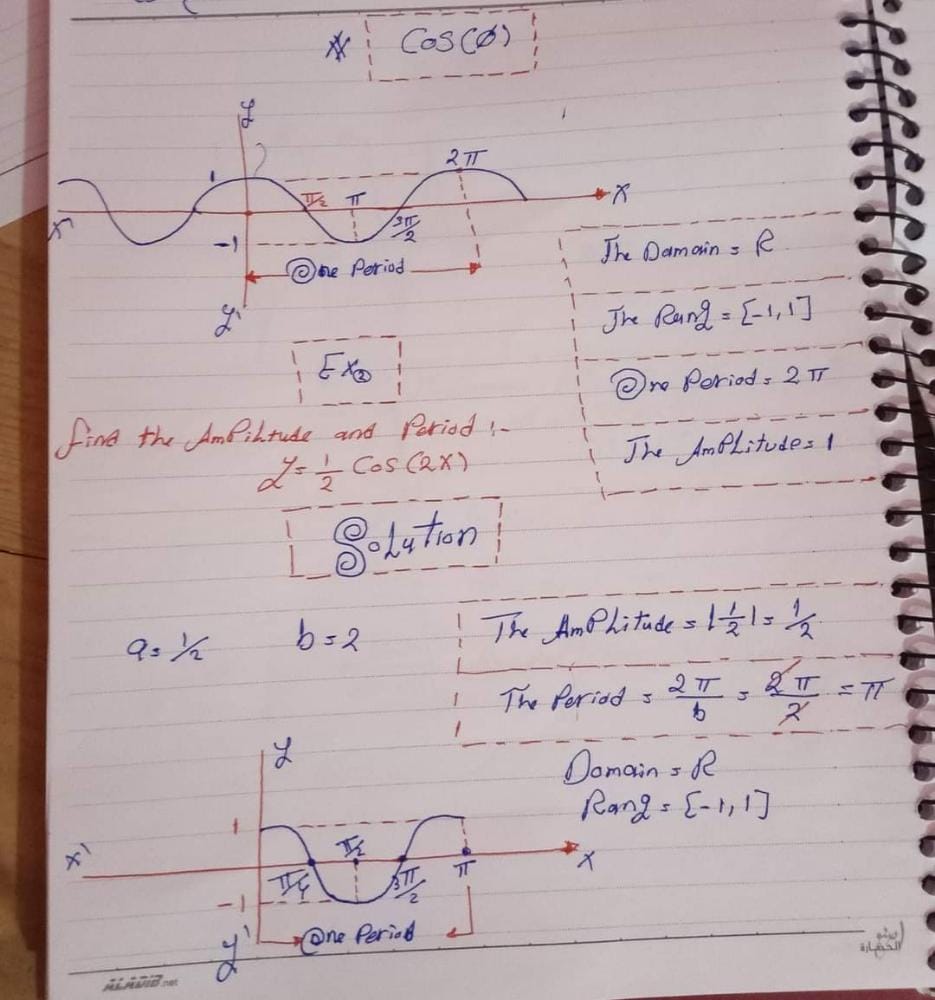 * Cos(Ø)
y
1
2π
π/2
π
x
x'
3π/2
-1
One Period
y'
The Domain = R
The Rang = [-1,1]
One Period = 2π
The Amplitude = 1
Ex②
find the Ampihtude and Period :-
y = 1/2 Cos(2x)
Solution
a = 1/2
b = 2
The Amplitude = |1/2| = 1/2
The Period = 2π/b = 2π/2 = π
Domain = R
Rang = [-1,1]
y
1
x'
π/4
π/2
3π/2
π
x
-1
One Period
y'
.net